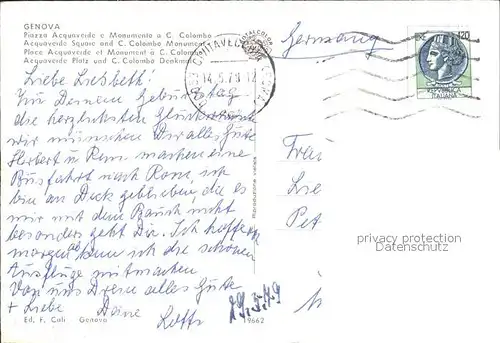 GENOVA
Piazza Acquaverde e Monumento a C. Colombo
Acquaverde Square and C. Colombo Monument
Place Acquaverde et Monument à C. Colombo
Acquaverde Platz und C. Colombo Denkmal
Liebe Liesbeth!
Zu Deinem Geburtstag
die herzlichsten Glückwünsche
wir wünschen Dir alles Gute
Herbert u machen eine
Busfahrt nach Rom, ich
bin an Deck geblieben, da es
mir mit dem Bauch nicht
besonders geht Dir. Ich hoffe
morgen kann ich die schönen
Ausflüge mitmachen
Von uns Dreien alles Gute
+ Liebe Deine
Lotte
Ed. F. Cali Genova
19662
29.5.79
Riproduzione vietata
CIVITAVECCHIA
14.5.79 12
Germany
LIRE 120
REPUBBLICA
ITALIANA
Frau
Lie
Pet
privacy protection
Datenschutz